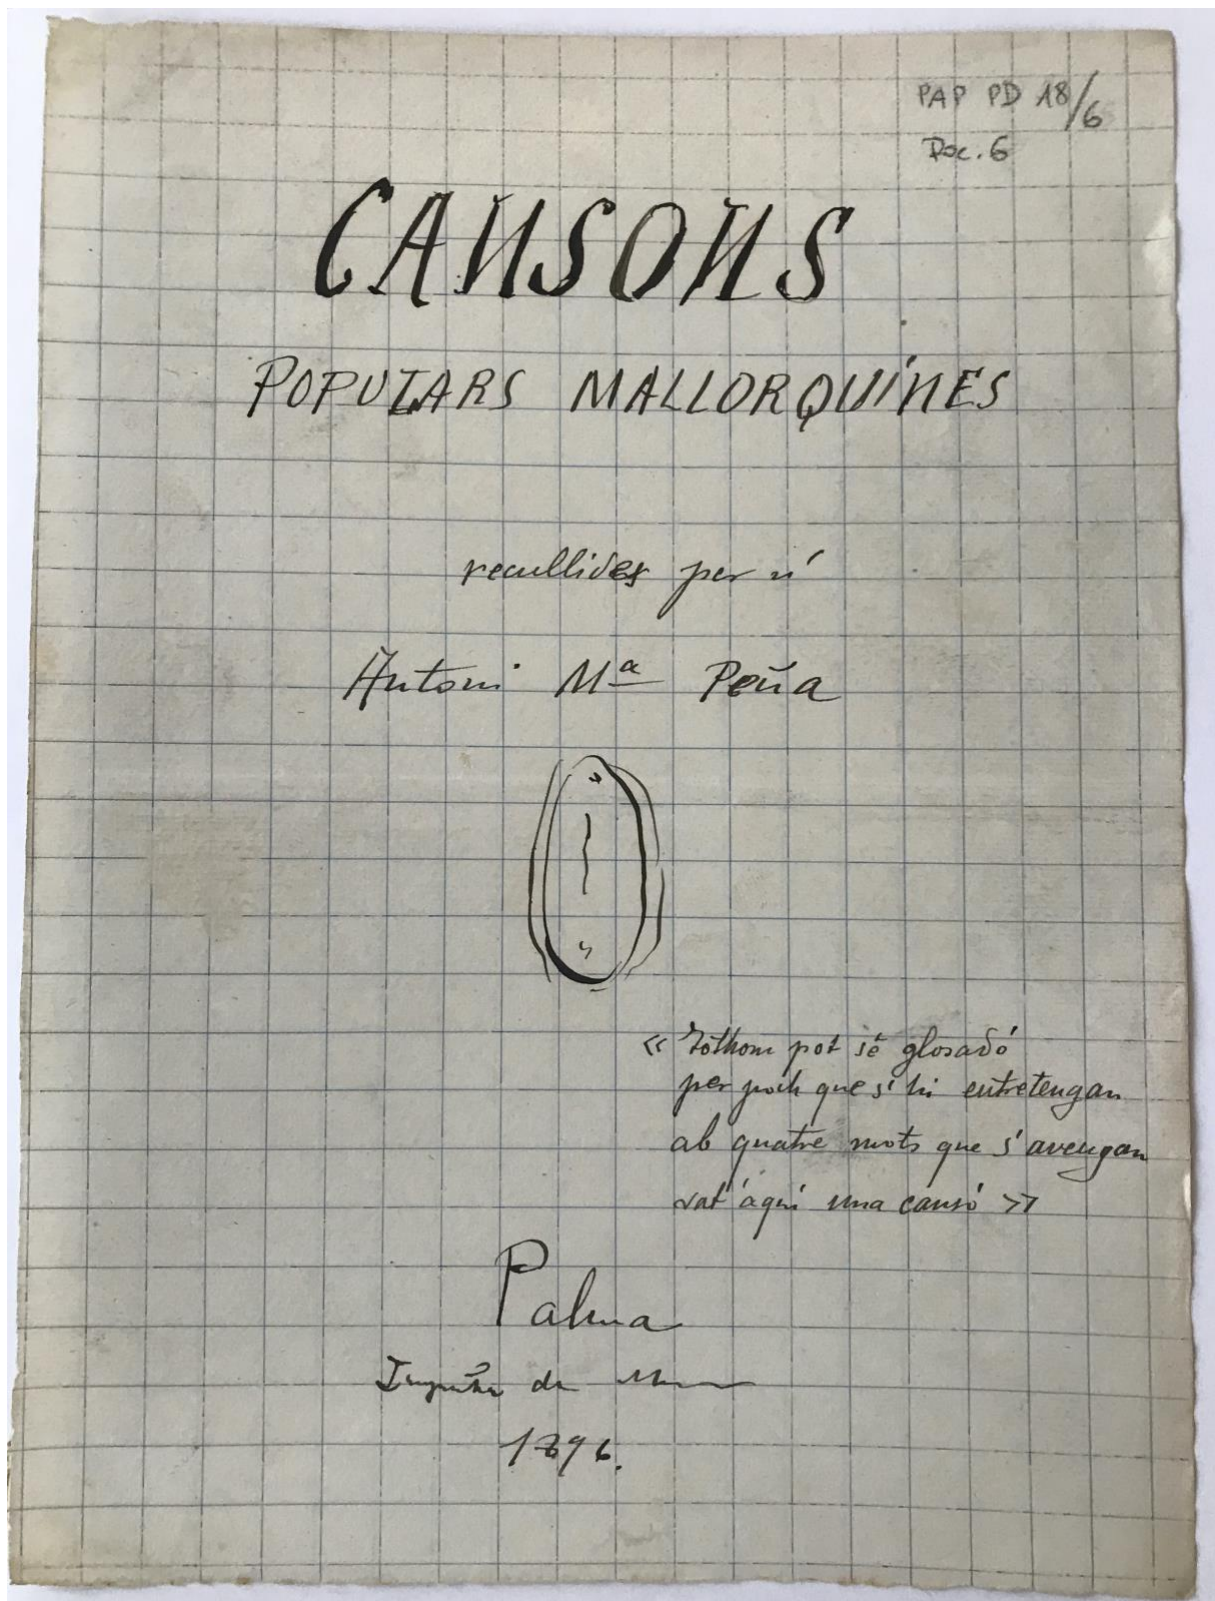 PAP PD 18/6
Doc. 6
CANSONS
POPULARS MALLORQUÍNES
recullides per n'
Antoni Mª Peña
« Tothom pot sé glosadó
per poch que s' hi entretengan
ab quatre mots que s' avengan
vat' aquí una cansó »
Palma
de
1896.